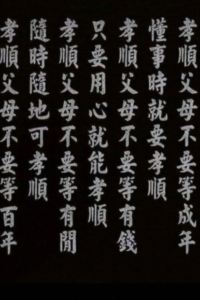 孝順父母不要等成年
懂事時就要孝順
孝順父母不要等有錢
只要用心就能孝順
孝順父母不要等有閒
隨時隨地可孝順
孝順父母不要等百年